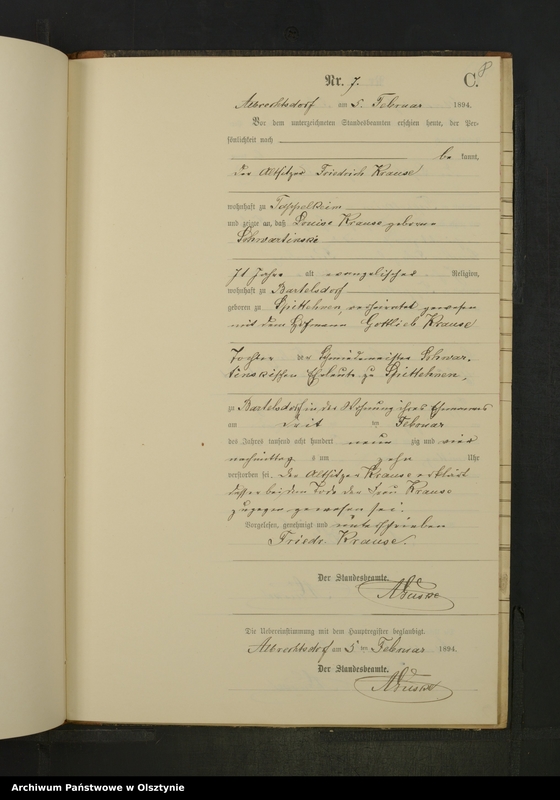 8
Nr. 7. C.
Albrechtsdorf am 5. Februar 1894.
Vor dem unterzeichneten Standesbeamten erschien heute, der Per-
sönlichkeit nach
be kannt,
der Altsitzer Friedrich Krause
wohnhaft zu Tappelkeim
und zeigte an, daß Louise Krause geborne
Schwartinski
71 Jahre alt evangelischer Religion,
wohnhaft zu Bartelsdorf
geboren zu Spittehnen, verheiratet gewesen
mit dem Gottlieb Krause
Tochter der Schmiedemeister Schwar-
tinskischen Eheleute zu Spittehnen,
zu Bartelsdorf in der Wohnung ihres Ehemannes
am ten Februar
des Jahres tausend acht hundert neun zig und vier
nachmittags um zehn Uhr
verstorben sei. Der Altsitzer Krause erklärt
daß er bei dem Tode der Frau Krause
zugegen gewesen sei.
Vorgelesen, genehmigt und unterschrieben
Friedr. Krause.
Der Standesbeamte.
Die Uebereinstimmung mit dem Hauptregister beglaubigt.
Albrechtsdorf am 5 ten Februar 1894.
Der Standesbeamte.
Archiwum Państwowe w Olsztynie